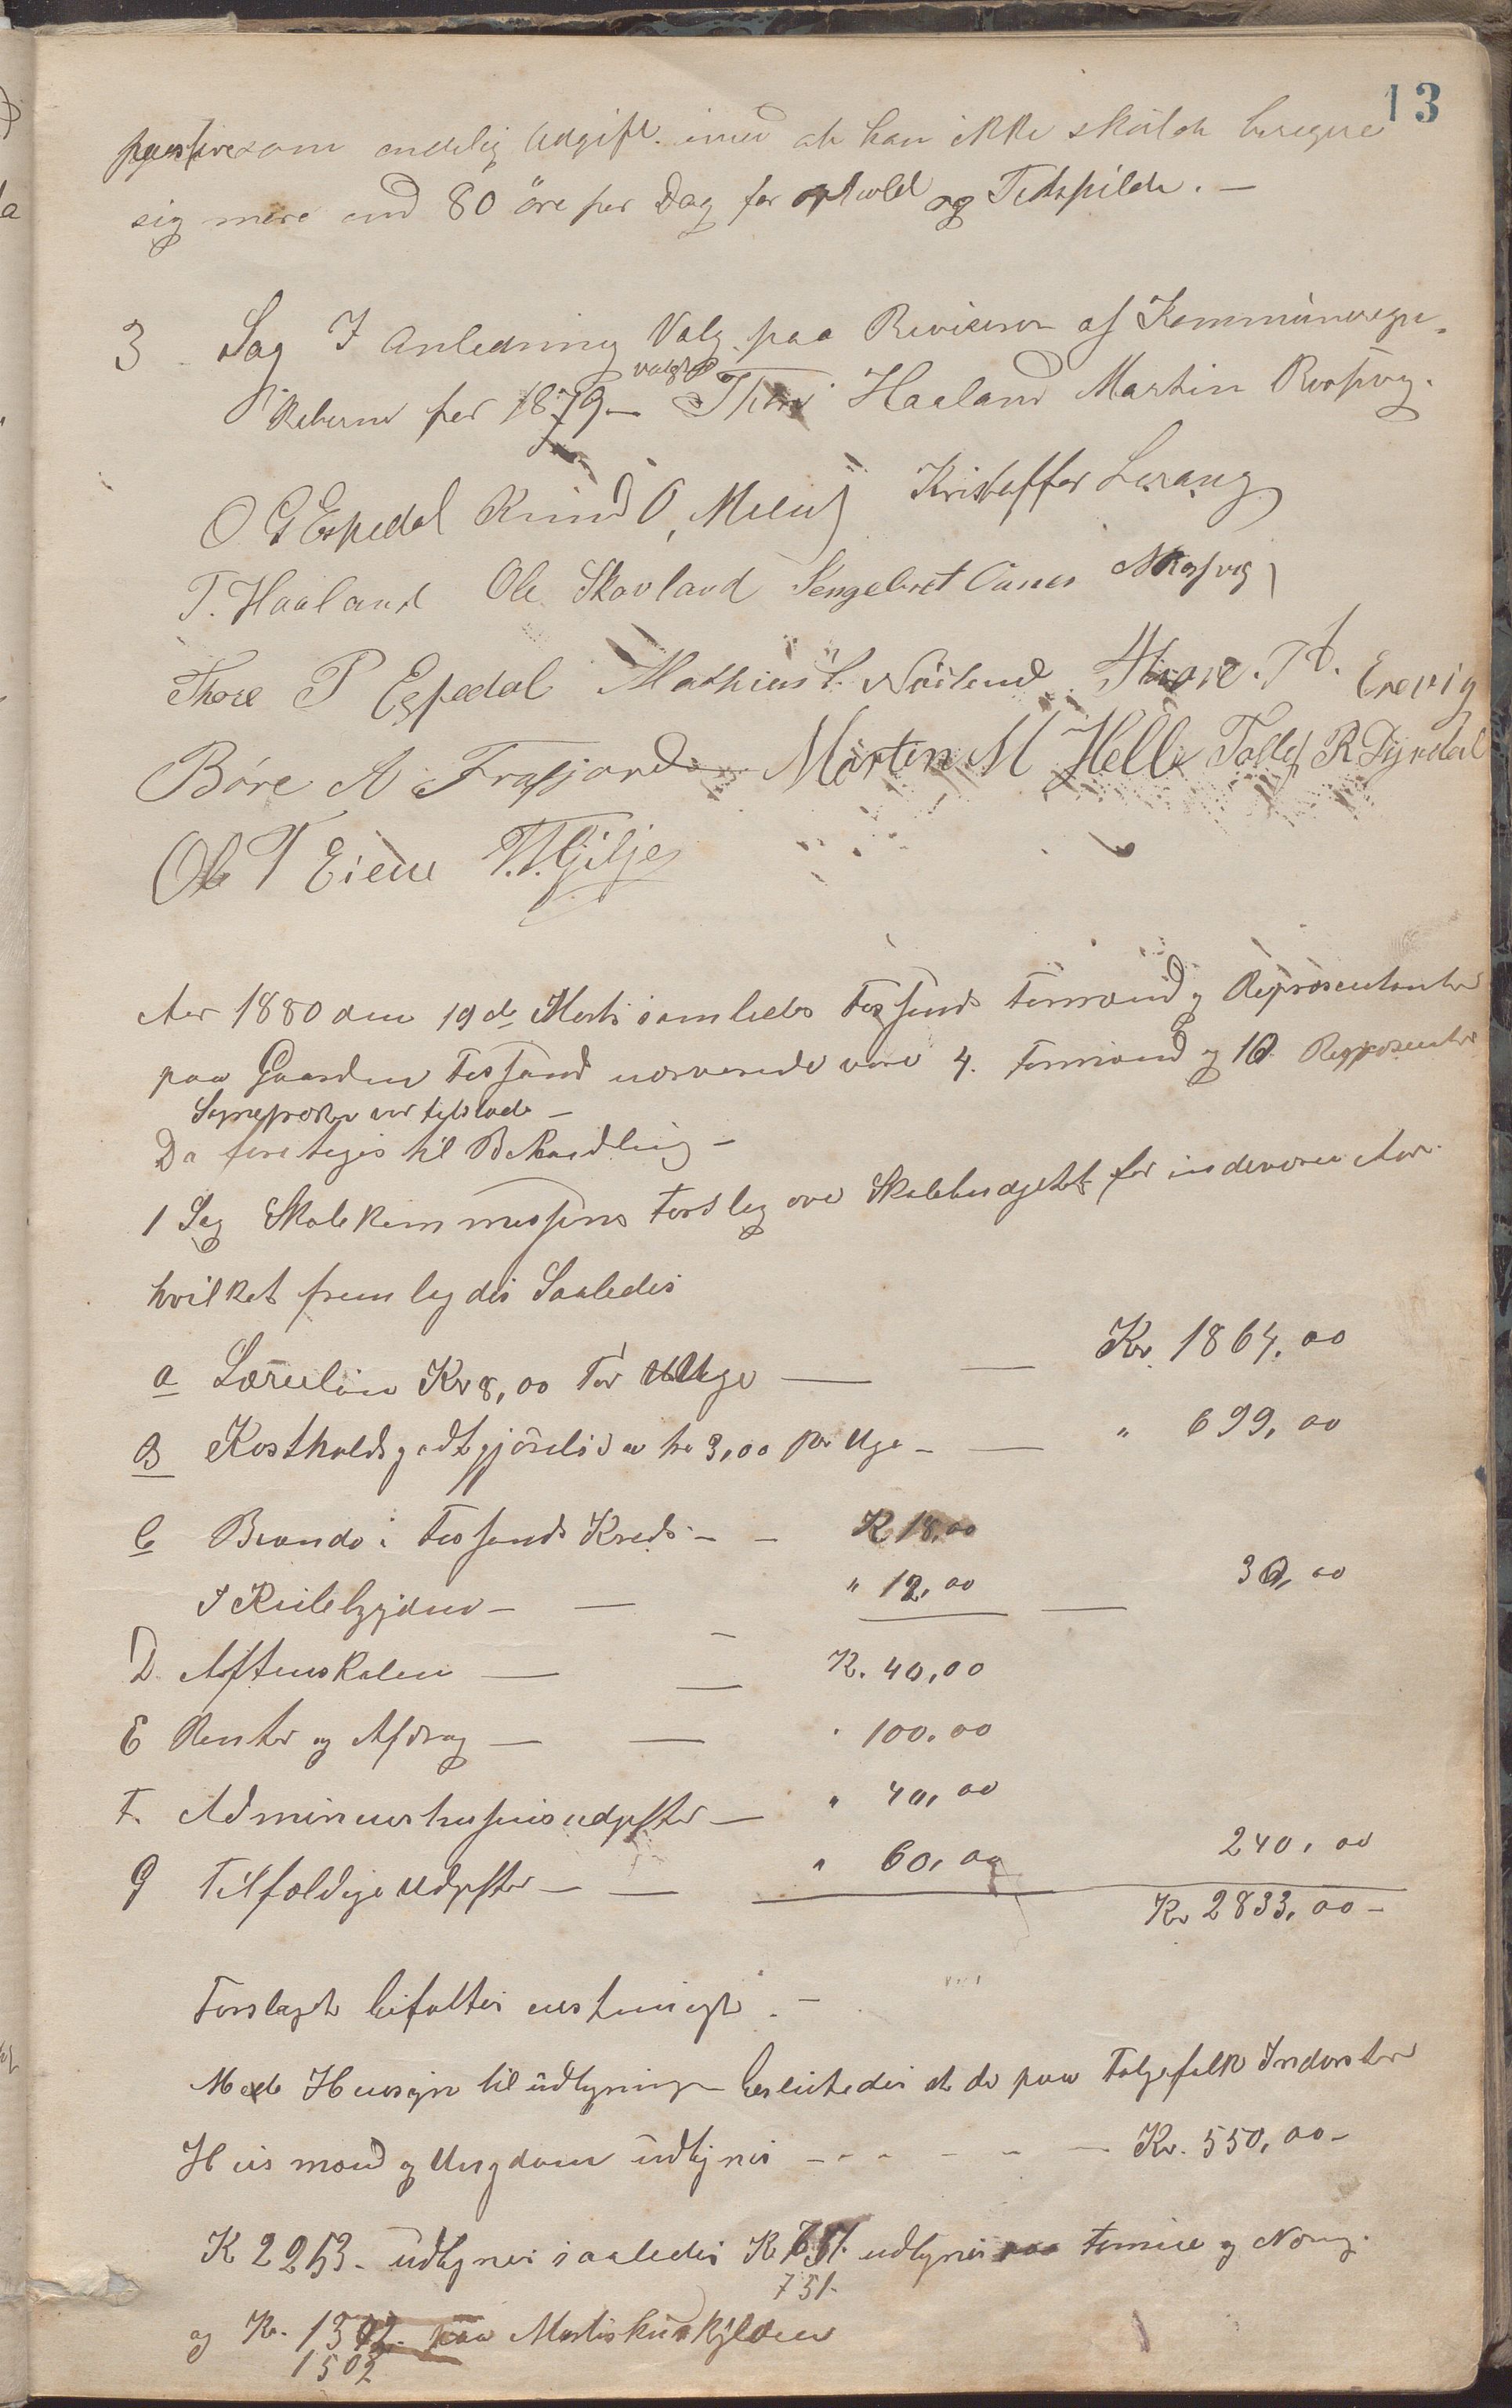 13
som endelig Udgift. imod at han ikke skulde beregne
sig mere end 80 öre per Dag for ophold og Tidspilde. —
3 Sag I Anledning Valg paa Revisorer af Kommuneregn-
skaberne for 1879 — valgtes Thore Haaland Martin Rossvig.
O G Espedal Knud O, Meling Kristoffer Lerang
T. Haaland Ole Skavland Sengebret Oanes M Rossvig
Thore P Espedal Mathias T. Nöiland. Thore. T. Erevig
Böre A Frafjord Morten M Helle Tollef R Dyrdal
Ole T Eiene T. T. Gilje
Aar 1880 den 19de Marts samledes Fossands Formænd og Repræsentanter
paa Gaarden Fossand nærværende vare 4. Formænd og 10 Repræsenter
Sognepresten var tilstæde —
Da foretoges til Behandling —
1 Sag Skolekommissions Forslag over Skolebudgetet for indeværen Aar.
hvilket fremlagdes Saaledes
a Lærerlön Kr 8,00 For Uge — Kr. 1864,00
B Kostholdsgodtgjörelse a kr 3,00 per Uge — — " 699,00
C Brænde i Fossands Kreds — — K 18,00
I — — " 12,00 — 30,00
D Aftenskolen — — K. 40,00
E Renter og Afdrag — — " 100,00
F. Administrasjonsudgifter — " 40,00
G Tilfældige Udgifter — — " 60,00 240,00
Kr 2833,00 —
Forslaget bifaltes enstemigt. —
Med Hensyn til Udligningen besluttedes at de paa Folgefolk Inderster
Husmænd og Ungdom udlignes — — — — — Kr. 550,00 —
K 2253 — udlignes saaledes K 751. udlignes paa Formue og Næring.
751 —
og Kr. 1502 — paa Matrikulskylden
1502